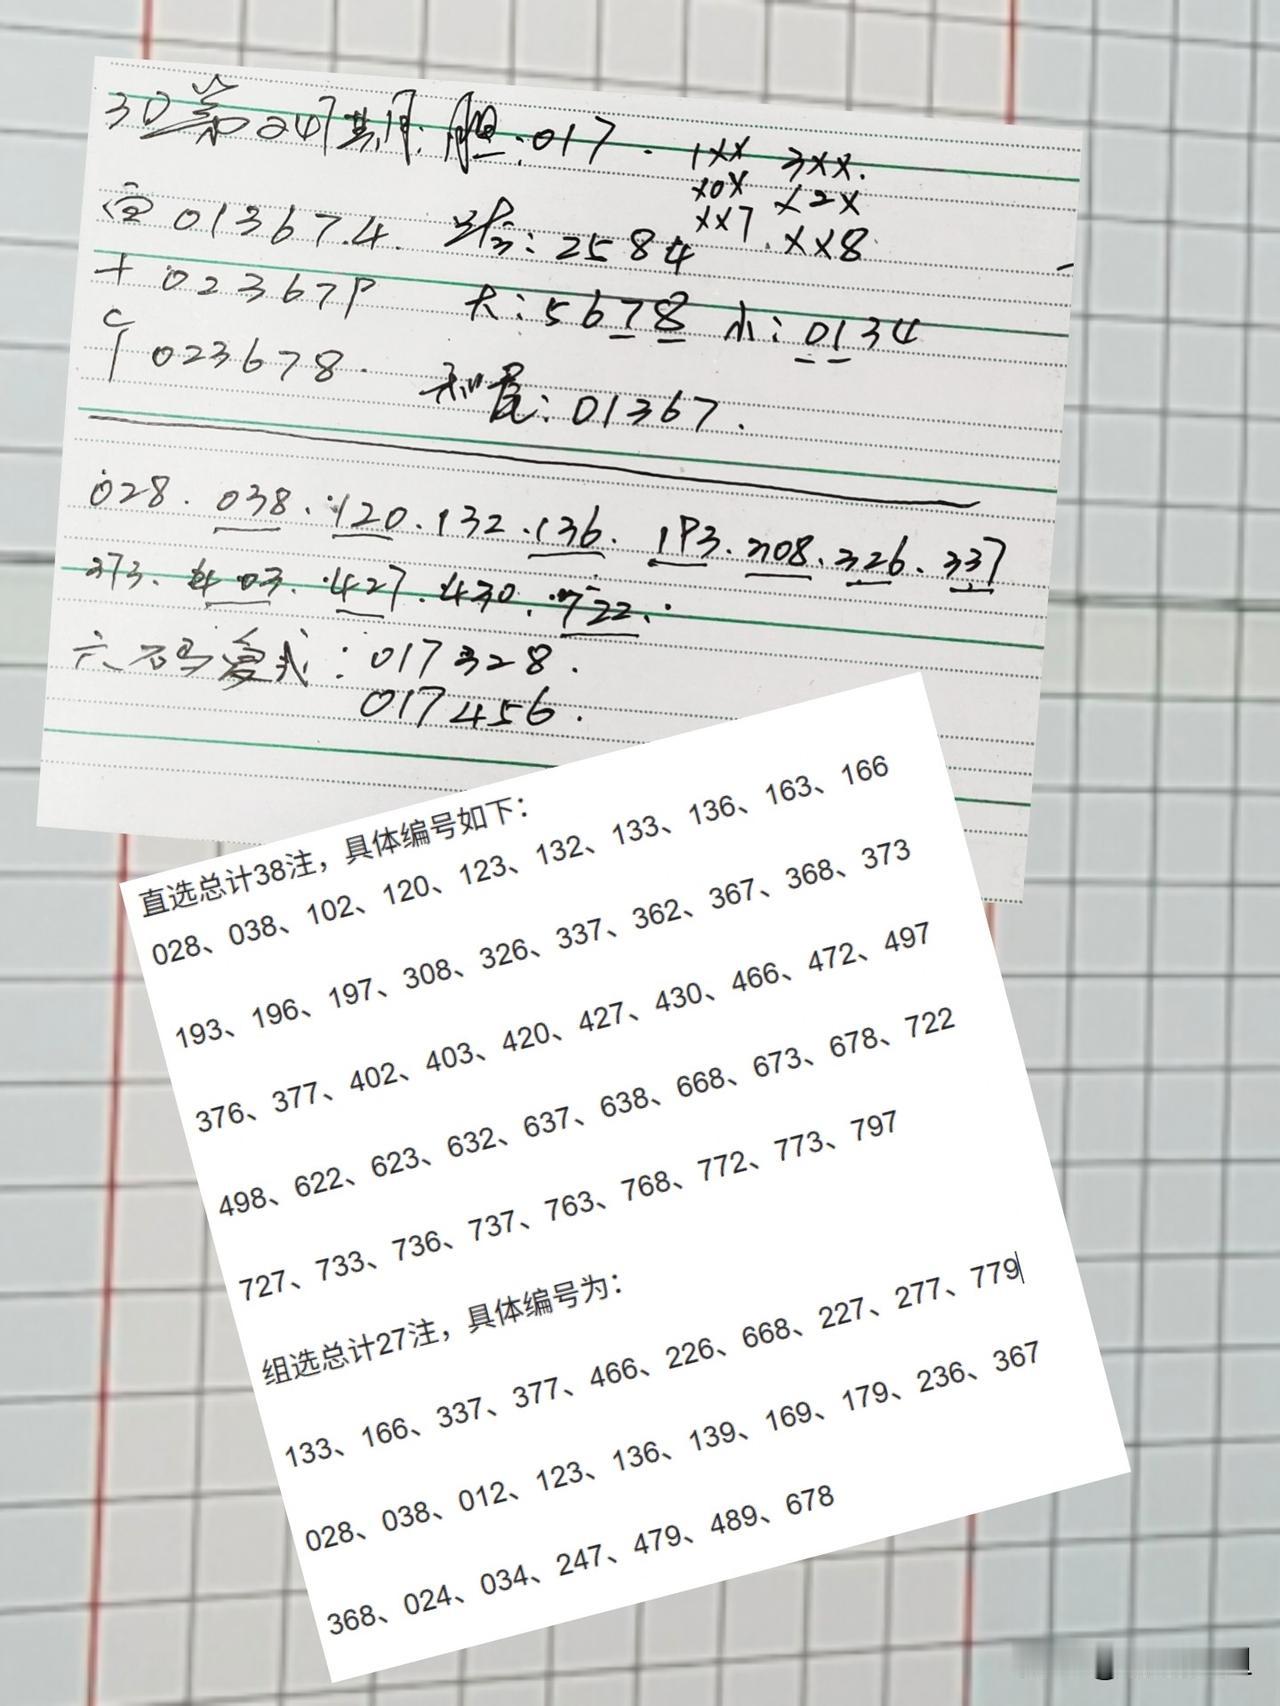 3D第247期. 胆:017. 1XX 3XX.
X0X X2X
XX7. XX8.
百 013674. 跨:2584
十 023679 大:5678 小:0134
个 023678. 和尾:01367.
028. 038. 120. 132. 136. 193. 308. 326. 337
373. 403. 427. 430. 722.
六码复式:017328.
017456.
直选总计38注，具体编号如下：
028、038、102、120、123、132、133、136、163、166
193、196、197、308、326、337、362、367、368、373
376、377、402、403、420、427、430、466、472、497
498、622、623、632、637、638、668、673、678、722
727、733、736、737、763、768、772、773、797
组选总计27注，具体编号为：
133、166、337、377、466、226、668、227、277、779
028、038、012、123、136、139、169、179、236、367
368、024、034、247、479、489、678